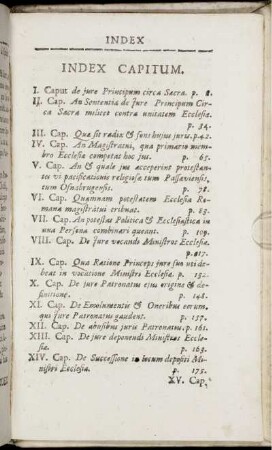 INDEX
INDEX CAPITUM.
I. Caput de jure Principum circa Sacra. p. 8.
II. Cap. An Sententia de Jure Principum Cir-
ca Sacra militet contra unitatem Ecclesiæ.
p. 34.
III. Cap. Quæ sit radix & fons hujus juris. p. 42.
IV. Cap. An Magistratui, qua primario mem-
bro Ecclesiæ competat hoc jus. p. 65.
V. Cap. An & quale jus acceperint protestan-
tes vi pacificationis religiosæ tum Passaviensis,
tum Osnabrugensis. p. 78.
VI. Cap. Quamnam potestatem Ecclesia Ro-
mana magistratui tribuat. p. 83.
VII. Cap. An potestas Politica & Ecclesiastica in
una Persona combinari queant. p. 109.
VIII. Cap. De Jure vocandi Ministros Ecclesiæ.
p. 117.
IX. Cap. Qua Ratione Princeps jure suo uti de-
beat in vocatione Ministri Ecclesiæ. p. 132.
X. Cap. De jure Patronatus ejus origine & de-
finitione. p. 148.
XI. Cap. De Emolumentis & Oneribus eorum,
qui jure Patronatus gaudent. p. 157.
XII. Cap. De abusibus juris Patronatus. p. 161.
XIII. Cap. De jure deponendi Ministros Eccle-
siæ. p. 169.
XIV. Cap. De Successione in locum depositi Mi-
nistri Ecclesiæ. p. 175.
XV. Cap.